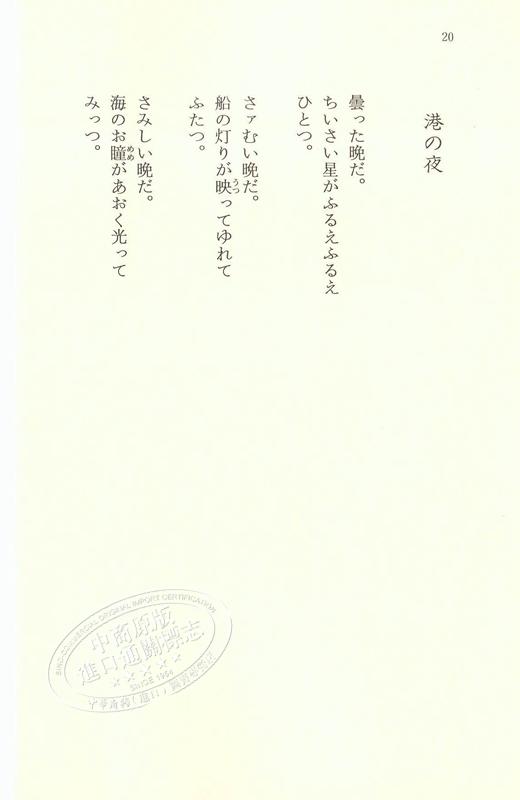 20
港の夜
曇った晩だ。
ちいさい星がふるえふるえ
ひとつ。
さァむい晩だ。
船の灯りが映ってゆれて
うつ
ふたつ。
さみしい晩だ。
海のお瞳があおく光って
めめ
みっつ。
SINO-COMMERCIAL ORIGINAL IMPORT CERTIFICATION
中商原版
進口通關標志
SINCE 1956